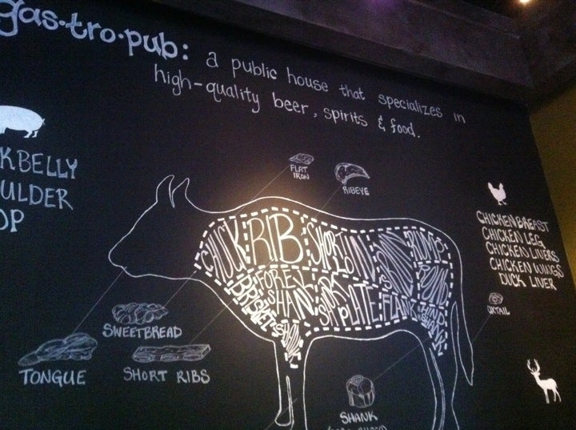 gas·tro·pub: a public house that specializes in
high-quality beer, spirits & food.
KBELLY
ULDER
OP
FLAT
IRON
RIBEYE
CHICKEN BREAST
CHICKEN LEG
CHICKEN LIVERS
CHICKEN WINGS
DUCK LIVER
CHUCK RIB
FORE
SHANK
BRISKET
PLATE
OXTAIL
SWEETBREAD
TONGUE
SHORT RIBS
SHANK